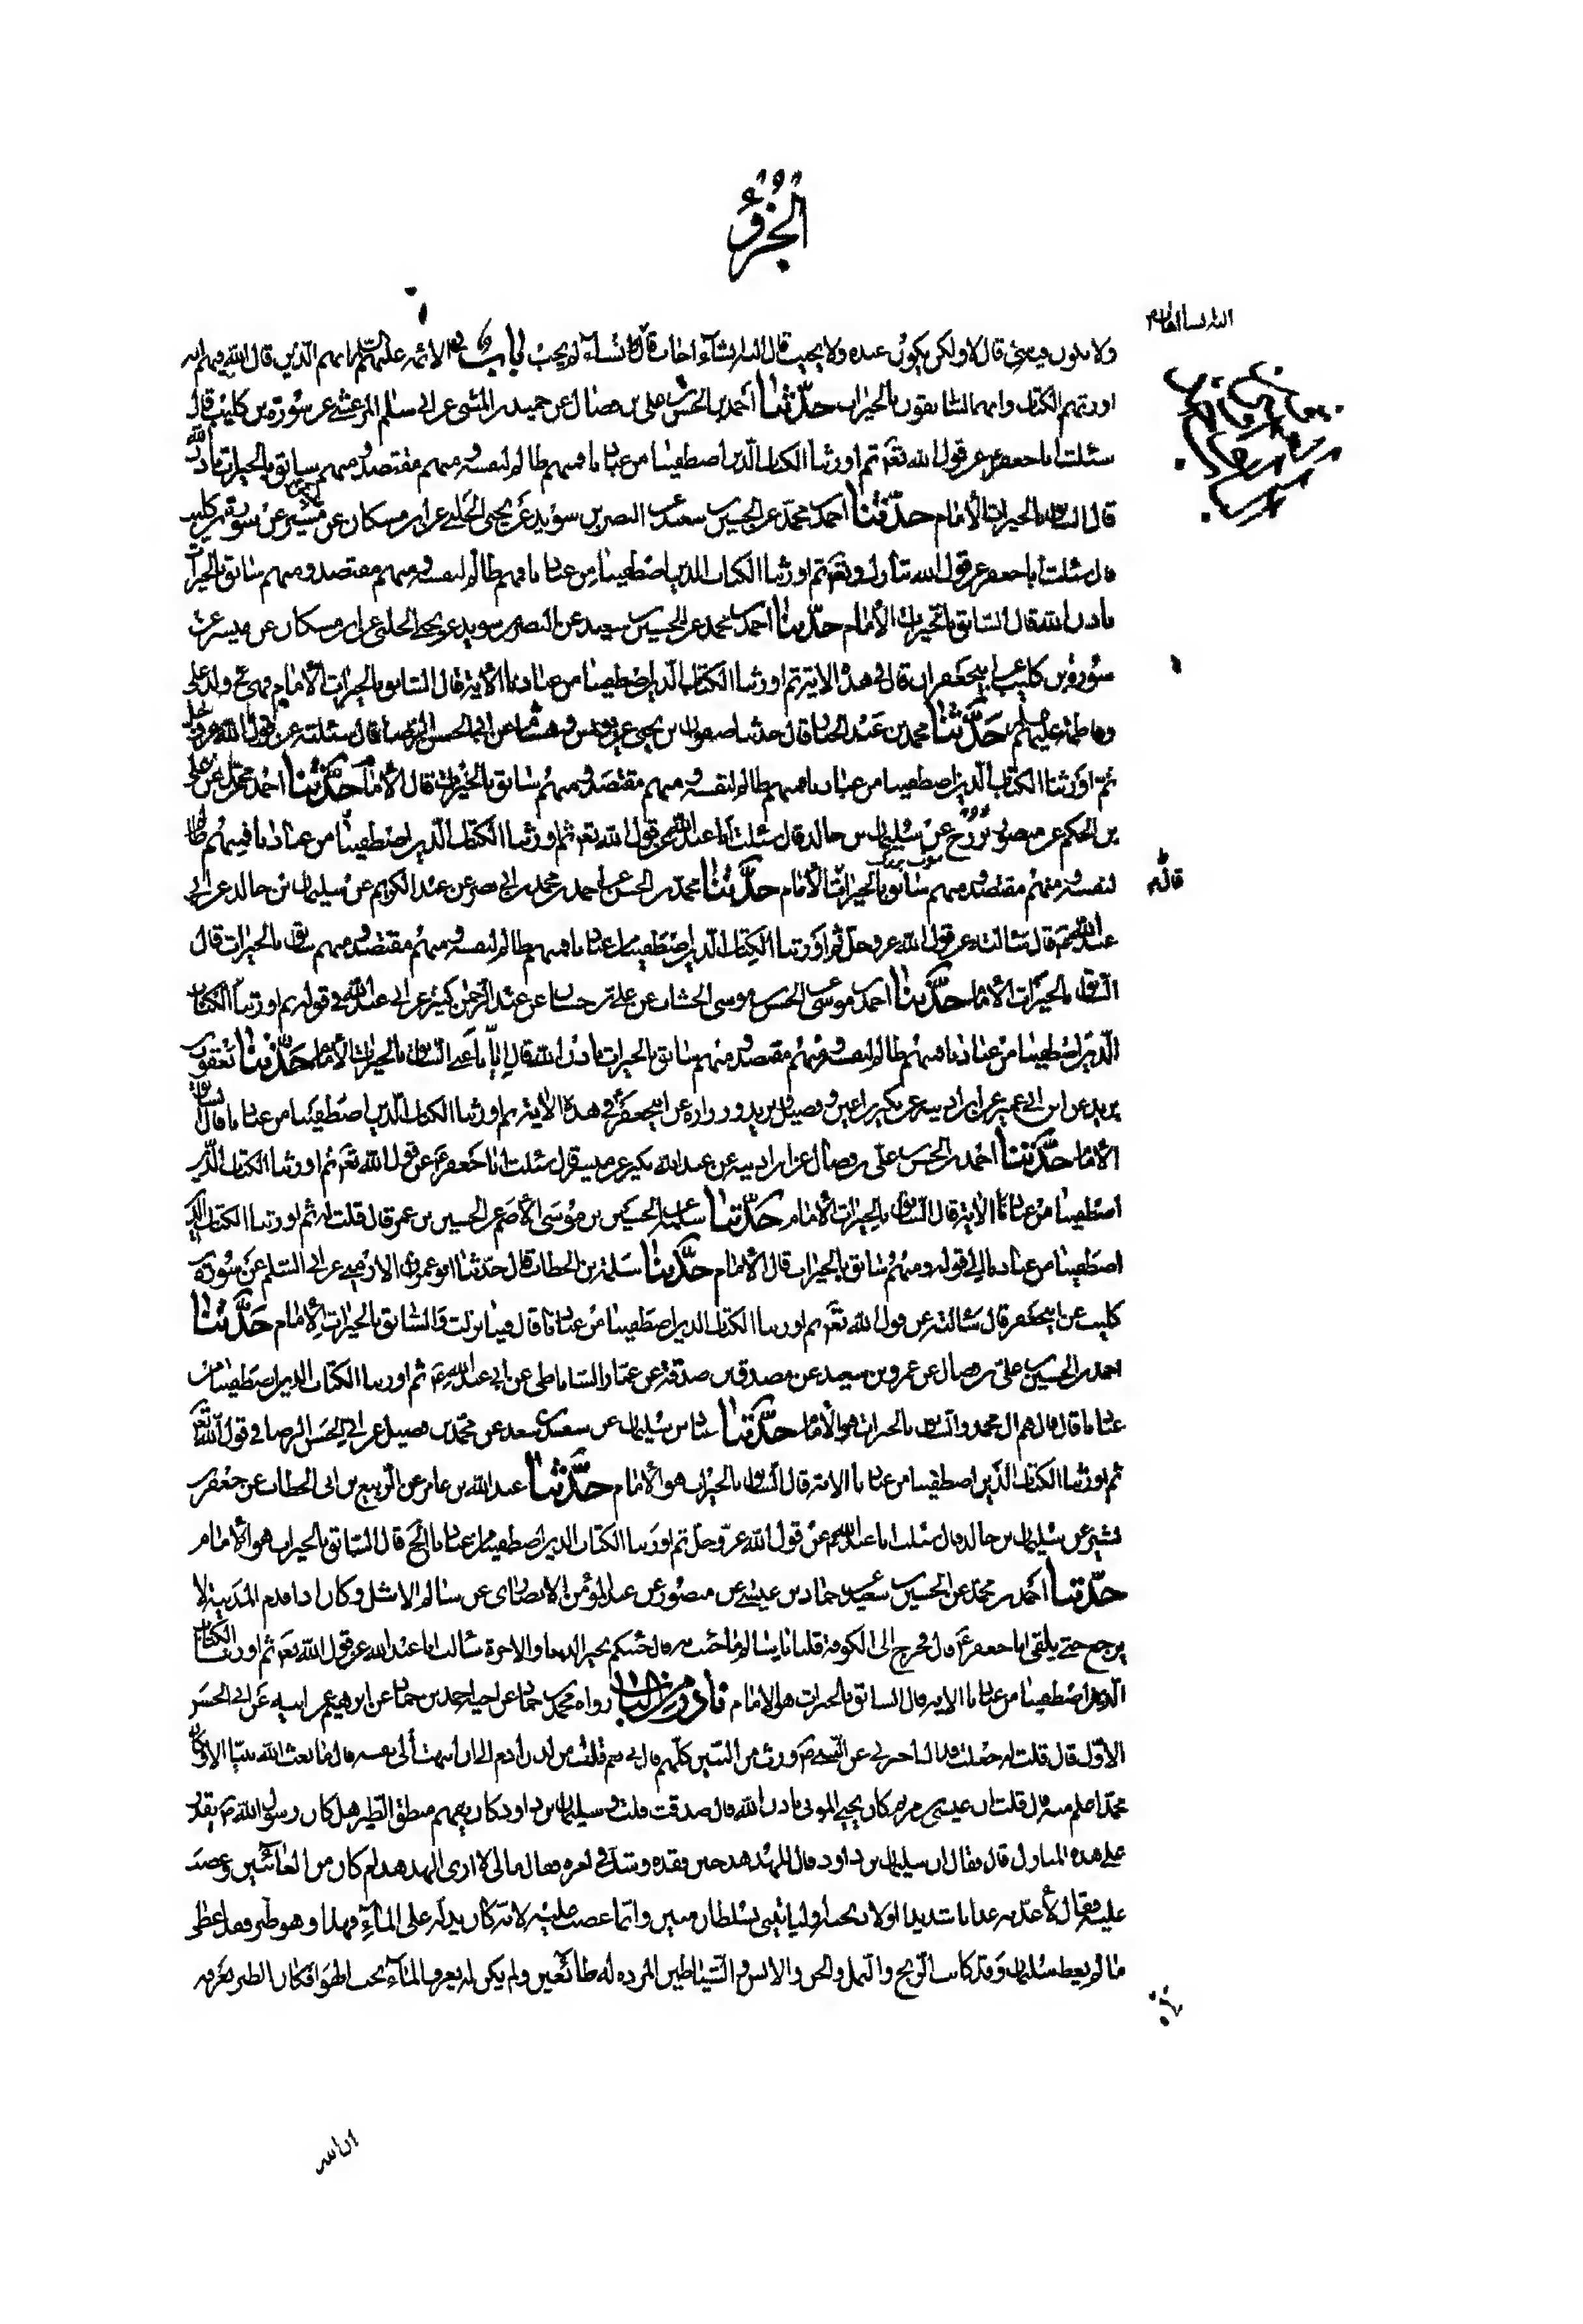 الجزؤ
ولا يكون فيه شئ قال لا ولكن يكون عنده ولا يجيب قال ان شاء اجاب قال وان شاء لم يجب باب في الائمة عليهم السلم انهم الذين قال الله فيهم انه
اورثهم الكتاب وانهم السابقون بالخيرات حدثنا احمد بن الحسن بن علي بن فضال عن حميد بن المثنى عن ابي سلام المرعشي عن سورة بن كليب قال
سئلت ابا جعفر عن قول الله تعم ثم اورثنا الكتاب الذين اصطفينا من عبادنا فمنهم ظالم لنفسه ومنهم مقتصد ومنهم سابق بالخيرات باذن الله
قال السابق بالخيرات الأمام حدثنا احمد بن محمد عن الحسين بن سعيد عن النصر بن سويد عن يحيى الحلبي عن ابن مسكان عن ميسر عن سورة بن كليب
قال سئلت ابا جعفر عن قول الله تبارك وتعم ثم اورثنا الكتاب الذين اصطفينا من عبادنا فمنهم ظالم لنفسه ومنهم مقتصد ومنهم سابق بالخيرات
باذن الله قال السابق بالخيرات الأمام حدثنا احمد بن محمد عن الحسين بن سعيد عن النصر بن سويد عن يحيى الحلبي عن ابن مسكان عن ميسر عن
سورة بن كليب عن ابيجعفر انه قال في هذه الاية ثم اورثنا الكتاب الذين اصطفينا من عبادنا الأية قال السابق بالخيرات الأمام فهي في ولد علي
وفاطمة عليهم السلم حدثنا محمد بن عبد الجبار قال حدثنا صفوان بن يحيى عن يونس وهشام عن ابي الحسن الرضا قال سئلته عن قول الله عز وجل
ثم اورثنا الكتاب الذين اصطفينا من عبادنا فمنهم ظالم لنفسه ومنهم مقتصد ومنهم سابق بالخيرات قال الأمام حدثنا احمد بن محمد عن علي
بن الحكم عن منصور بزرج عن سليمان بن خالد قال سئلت ابا عبد الله عن قول الله تعم ثم اورثنا الكتاب الذين اصطفينا من عبادنا فمنهم ظالم
لنفسه ومنهم مقتصد ومنهم سابق بالخيرات الأمام حدثنا محمد بن الحسن عن احمد بن محمد بن ابي نصر عن عبد الكريم عن سليمان بن خالد عن ابي
عبد الله قال سئالته عن قول الله عز وجل ثم اورثنا الكتاب الذين اصطفينا من عبادنا فمنهم ظالم لنفسه ومنهم مقتصد ومنهم سابق بالخيرات قال
السابق بالخيرات الأمام حدثنا احمد بن موسى عن الحسن بن موسى الخشاب عن علي بن حسان عن عبد الرحمن بن كثير عن ابي عبد الله في قوله ثم اورثنا الكتاب
الذين اصطفينا من عبادنا فمنهم ظالم لنفسه ومنهم مقتصد ومنهم سابق بالخيرات باذن الله قال ايانا عنى السابق بالخيرات الأمام حدثنا يعقوب
بن يزيد عن ابن ابي عمير عن ابن اذينه عن بكير بن اعين وفضيل وبريد وزراره عن ابيجعفر في هذه الأية ثم اورثنا الكتاب الذين اصطفينا من عبادنا قال السابق
الأمام حدثنا احمد بن الحسن بن علي بن فضال عن ابن اذينه عن عبد الله بن بكير عن ميسر قال سئلت ابا جعفر عن قول الله تعم ثم اورثنا الكتاب الذين
اصطفينا من عبادنا الأية قال السابق بالخيرات الأمام حدثنا سلمة عن الحسين بن موسى الأصم عن الحسين بن عمر قال قلت له ثم اورثنا الكتاب الذين
اصطفينا من عبادنا الى قوله ومنهم سابق بالخيرات قال الأمام حدثنا سلمة بن الخطاب قال حدثنا ابو عمران الارمني عن ابي السلم عن سورة بن
كليب عن ابيجعفر قال سئالته عن قول الله تعم ثم اورثنا الكتاب الذين اصطفينا من عبادنا قال فينا نزلت والسابق بالخيرات الأمام حدثنا
احمد بن الحسين بن علي بن فضال عن عمرو بن سعيد عن مصدق بن صدقة عن عمار الساباطي عن ابي عبد الله ثم اورثنا الكتاب الذين اصطفينا من
عبادنا قال قال هم ال محمد والسابق بالخيرات هو الأمام حدثنا عباد بن سليمان عن سعد بن سعد عن محمد بن فضيل عن ابي الحسن الرضا في قول الله تعم
ثم اورثنا الكتاب الذين اصطفينا من عبادنا الاية قال السابق بالخيرات هو الأمام حدثنا عبد الله بن عامر عن الربيع بن ابي الخطاب عن جعفر بن
بشير عن سليمان بن خالد قال سئلت ابا عبد الله عن قول الله عز وجل ثم اورثنا الكتاب الذين اصطفينا من عبادنا الخ قال السابق بالخيرات هو الأمام
حدثنا احمد بن محمد عن الحسين بن سعيد عن حماد بن عيسى عن منصور عن عبد المؤمن الانصاري عن سالم الاشل وكان اذا قدم المدينة لا
يرجع حتى يلقى ابا جعفر قال فخرج الى الكوفة قلنا يا سالم ما جئت به قال جئتكم بخير الدنيا والاخرة سئالت ابا عبد الله عن قول الله تعم ثم اورثنا الكتاب
الذين اصطفينا من عبادنا الاية قال السابق بالخيرات هو الامام نادر من الباب رواه محمد بن حماد عن اخيه احمد بن حماد عن ابرهيم عن ابيه عن ابي الحسن
الأول قال قلت له جعلت فداك اخبرني عن النبي ورث من النبيين كلهم قال لي نعم قلت من لدن ادم الى ان انتهت الى نفسه قال ما بعث الله نبيا الا وكان
محمد اعلم منه قال قلت ان عيسى بن مريم كان يحيي الموتى باذن الله قال صدقت قلت وسليمان بن داود كان يفهم منطق الطير هل كان رسول الله يقدر
على هذه المنازل قال فقال ان سليمان بن داود قال للهدهد حين فقده وشك في امره فقال مالي لا ارى الهدهد ام كان من الغائبين وغضب
عليه فقال لأعذبنه عذابا شديدا او لاذبحنه او ليأتيني بسلطان مبين وانما غضب عليه لانه كان يدله على الماء فهذا وهو طير فقد اعطى
ما لم يعط سليمان وقد كانت الريح والنمل والجن والانس والشياطين المردة له طائعين ولم يكن له يعرف الماء تحت الهوا فكان الطير يعرفه